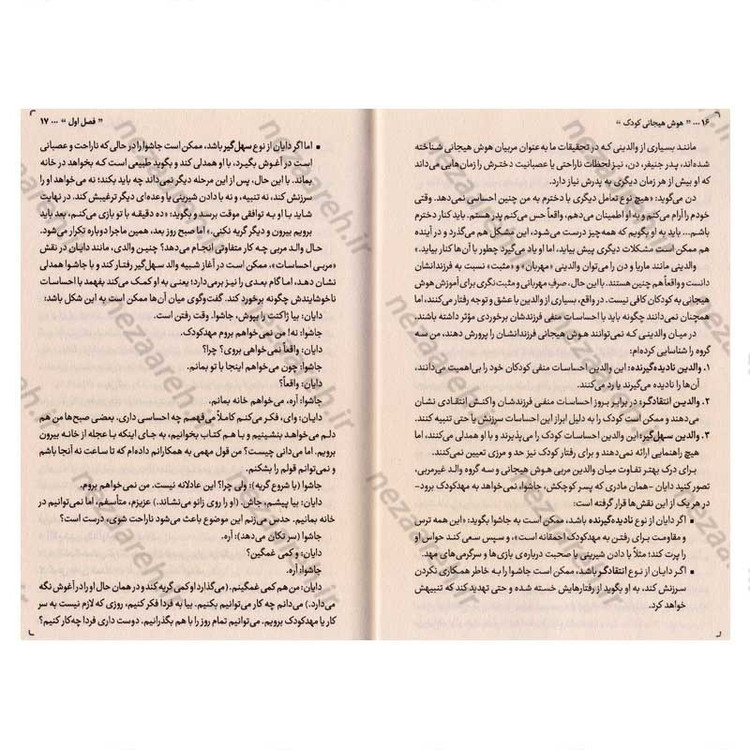 ۱۶ ... « هوش هیجانی کودک »
مانند بسیاری از والدینی که در تحقیقات ما به‌عنوان مربیان هوش هیجانی شناخته
شده‌اند، پدر جنیفر، دن، نیز لحظات ناراحتی یا عصبانیت دخترش را زمان‌هایی می‌داند
که او بیش از هر زمان دیگری به پدرش نیاز دارد.
دن می‌گوید: «هیچ نوع تعامل دیگری با دخترم به من چنین احساسی نمی‌دهد. وقتی
خودم را آرام می‌کنم و به او اطمینان می‌دهم، واقعاً حس می‌کنم پدر هستم. باید کنار دخترم
باشم... باید به او بگویم که همه‌چیز درست می‌شود، این مشکل هم می‌گذرد و در آینده
هم ممکن است مشکلات دیگری پیش بیاید، اما او یاد می‌گیرد چطور با آن‌ها کنار بیاید.»
والدینی مانند ماریا و دن را می‌توان والدینی «مهربان» و «مثبت» نسبت به فرزندانشان
دانست و واقعاً هم چنین هستند. با این حال، صرف مهربانی و مثبت‌نگری برای آموزش هوش
هیجانی به کودکان کافی نیست. در واقع، بسیاری از والدین با عشق و توجه رفتار می‌کنند، اما
همچنان نمی‌دانند چگونه باید با احساسات منفی فرزندشان برخوردی مؤثر داشته باشند.
در میان والدینی که نمی‌توانند هوش هیجانی فرزندانشان را پرورش دهند، من سه
گروه را شناسایی کرده‌ام:
۱. والدین نادیده‌گیرنده: این والدین احساسات منفی کودکان خود را بی‌اهمیت می‌دانند،
آن‌ها را نادیده می‌گیرند یا رد می‌کنند.
۲. والدین انتقادگر: در برابر بروز احساسات منفی فرزندشان واکنش انتقادی نشان
می‌دهند و ممکن است کودک را به دلیل ابراز این احساسات سرزنش یا حتی تنبیه کنند.
۳. والدین سهل‌گیر: این والدین احساسات کودک را می‌پذیرند و با او همدلی می‌کنند، اما
هیچ راهنمایی ارائه نمی‌دهند و برای رفتار کودک نیز حد و مرزی تعیین نمی‌کنند.
برای درک بهتر تفاوت میان والدین مربی هوش هیجانی و سه گروه والد غیرمربی،
تصور کنید دایان –همان مادری که پسر کوچکش، جاشوا، نمی‌خواهد به مهدکودک برود–
در هر یک از این نقش‌ها قرار گرفته است:
• اگر دایان از نوع نادیده‌گیرنده باشد، ممکن است به جاشوا بگوید: «این همه ترس
و مقاومت برای رفتن به مهدکودک احمقانه است»، و سپس سعی کند حواس او
را پرت کند؛ مثلاً با دادن شیرینی یا صحبت درباره‌ی بازی‌ها و سرگرمی‌های مهد.
• اگر دایان از نوع انتقادگر باشد، ممکن است جاشوا را به خاطر همکاری نکردن
سرزنش کند، به او بگوید از رفتارهایش خسته شده و حتی تهدید کند که تنبیهش
خواهد کرد.
« فصل اول » ... ۱۷
• اما اگر دایان از نوع سهل‌گیر باشد، ممکن است جاشوا را در حالی که ناراحت و عصبانی
است در آغوش بگیرد، با او همدلی کند و بگوید طبیعی است که بخواهد در خانه
بماند. با این حال، پس از این مرحله دیگر نمی‌داند چه باید بکند؛ نه می‌خواهد او را
سرزنش کند، نه تنبیه، و نه با دادن شیرینی یا وعده‌ای دیگر ترغیبش کند. در نهایت
شاید با او به توافقی موقت برسد و بگوید: «ده دقیقه با تو بازی می‌کنم، بعد باید
برویم بیرون و دیگر گریه نکنی.» اما صبح روز بعد، همین ماجرا دوباره تکرار می‌شود.
حال والد مربی چه کار متفاوتی انجام می‌دهد؟ چنین والدی، مانند دایان در نقش
«مربی احساسات»، ممکن است در آغاز شبیه والد سهل‌گیر رفتار کند و با جاشوا همدلی
نشان دهد، اما گام بعدی را نیز برمی‌دارد؛ یعنی به او کمک می‌کند بفهمد با احساسات
ناخوشایندش چگونه برخورد کند. گفت‌وگوی میان آن‌ها ممکن است به این شکل باشد:
دایان: بیا ژاکتت را بپوش، جاشوا. وقت رفتن است.
جاشوا: نه! من نمی‌خواهم بروم مهدکودک.
دایان: واقعاً نمی‌خواهی بروی؟ چرا؟
جاشوا: چون می‌خواهم اینجا با تو بمانم.
دایان: واقعاً؟
جاشوا: آره، می‌خواهم خانه بمانم.
دایان: وای، فکر می‌کنم کاملاً می‌فهمم چه احساسی داری. بعضی صبح‌ها من هم
دلم می‌خواهد بنشینیم و با هم کتاب بخوانیم، به جای اینکه با عجله از خانه بیرون
برویم. اما می‌دانی چیست؟ من قول مهمی به همکارانم داده‌ام که تا ساعت نه آنجا باشم
و نمی‌توانم قولم را بشکنم.
جاشوا (با شروع گریه): ولی چرا؟ این عادلانه نیست. من نمی‌خواهم بروم.
دایان: بیا پیشم، جاش. (او را روی زانو می‌نشاند.) عزیزم، متأسفم، اما نمی‌توانیم در
خانه بمانیم. حدس می‌زنم این موضوع باعث می‌شود ناراحت شوی، درست است؟
جاشوا (سر تکان می‌دهد): آره.
دایان: و کمی غمگین؟
جاشوا: آره.
دایان: من هم کمی غمگینم. (می‌گذارد او کمی گریه کند و در همان حال او را در آغوش نگه
می‌دارد.) می‌دانم چه کار می‌توانیم بکنیم. بیا به فردا فکر کنیم، روزی که لازم نیست به سر
کار یا مهدکودک برویم. می‌توانیم تمام روز را با هم بگذرانیم. دوست داری فردا چه‌کار کنیم؟
nezaareh.ir